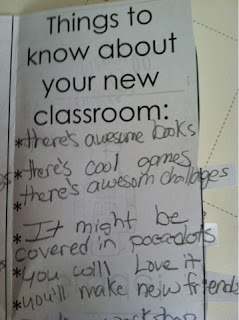 Things to
know about
your new
classroom:
*there's awesome books
*there's cool games
there's awesom challages
*
*It might be
covered in pocadots
*you will Love it
*you'll make new friends
workshop